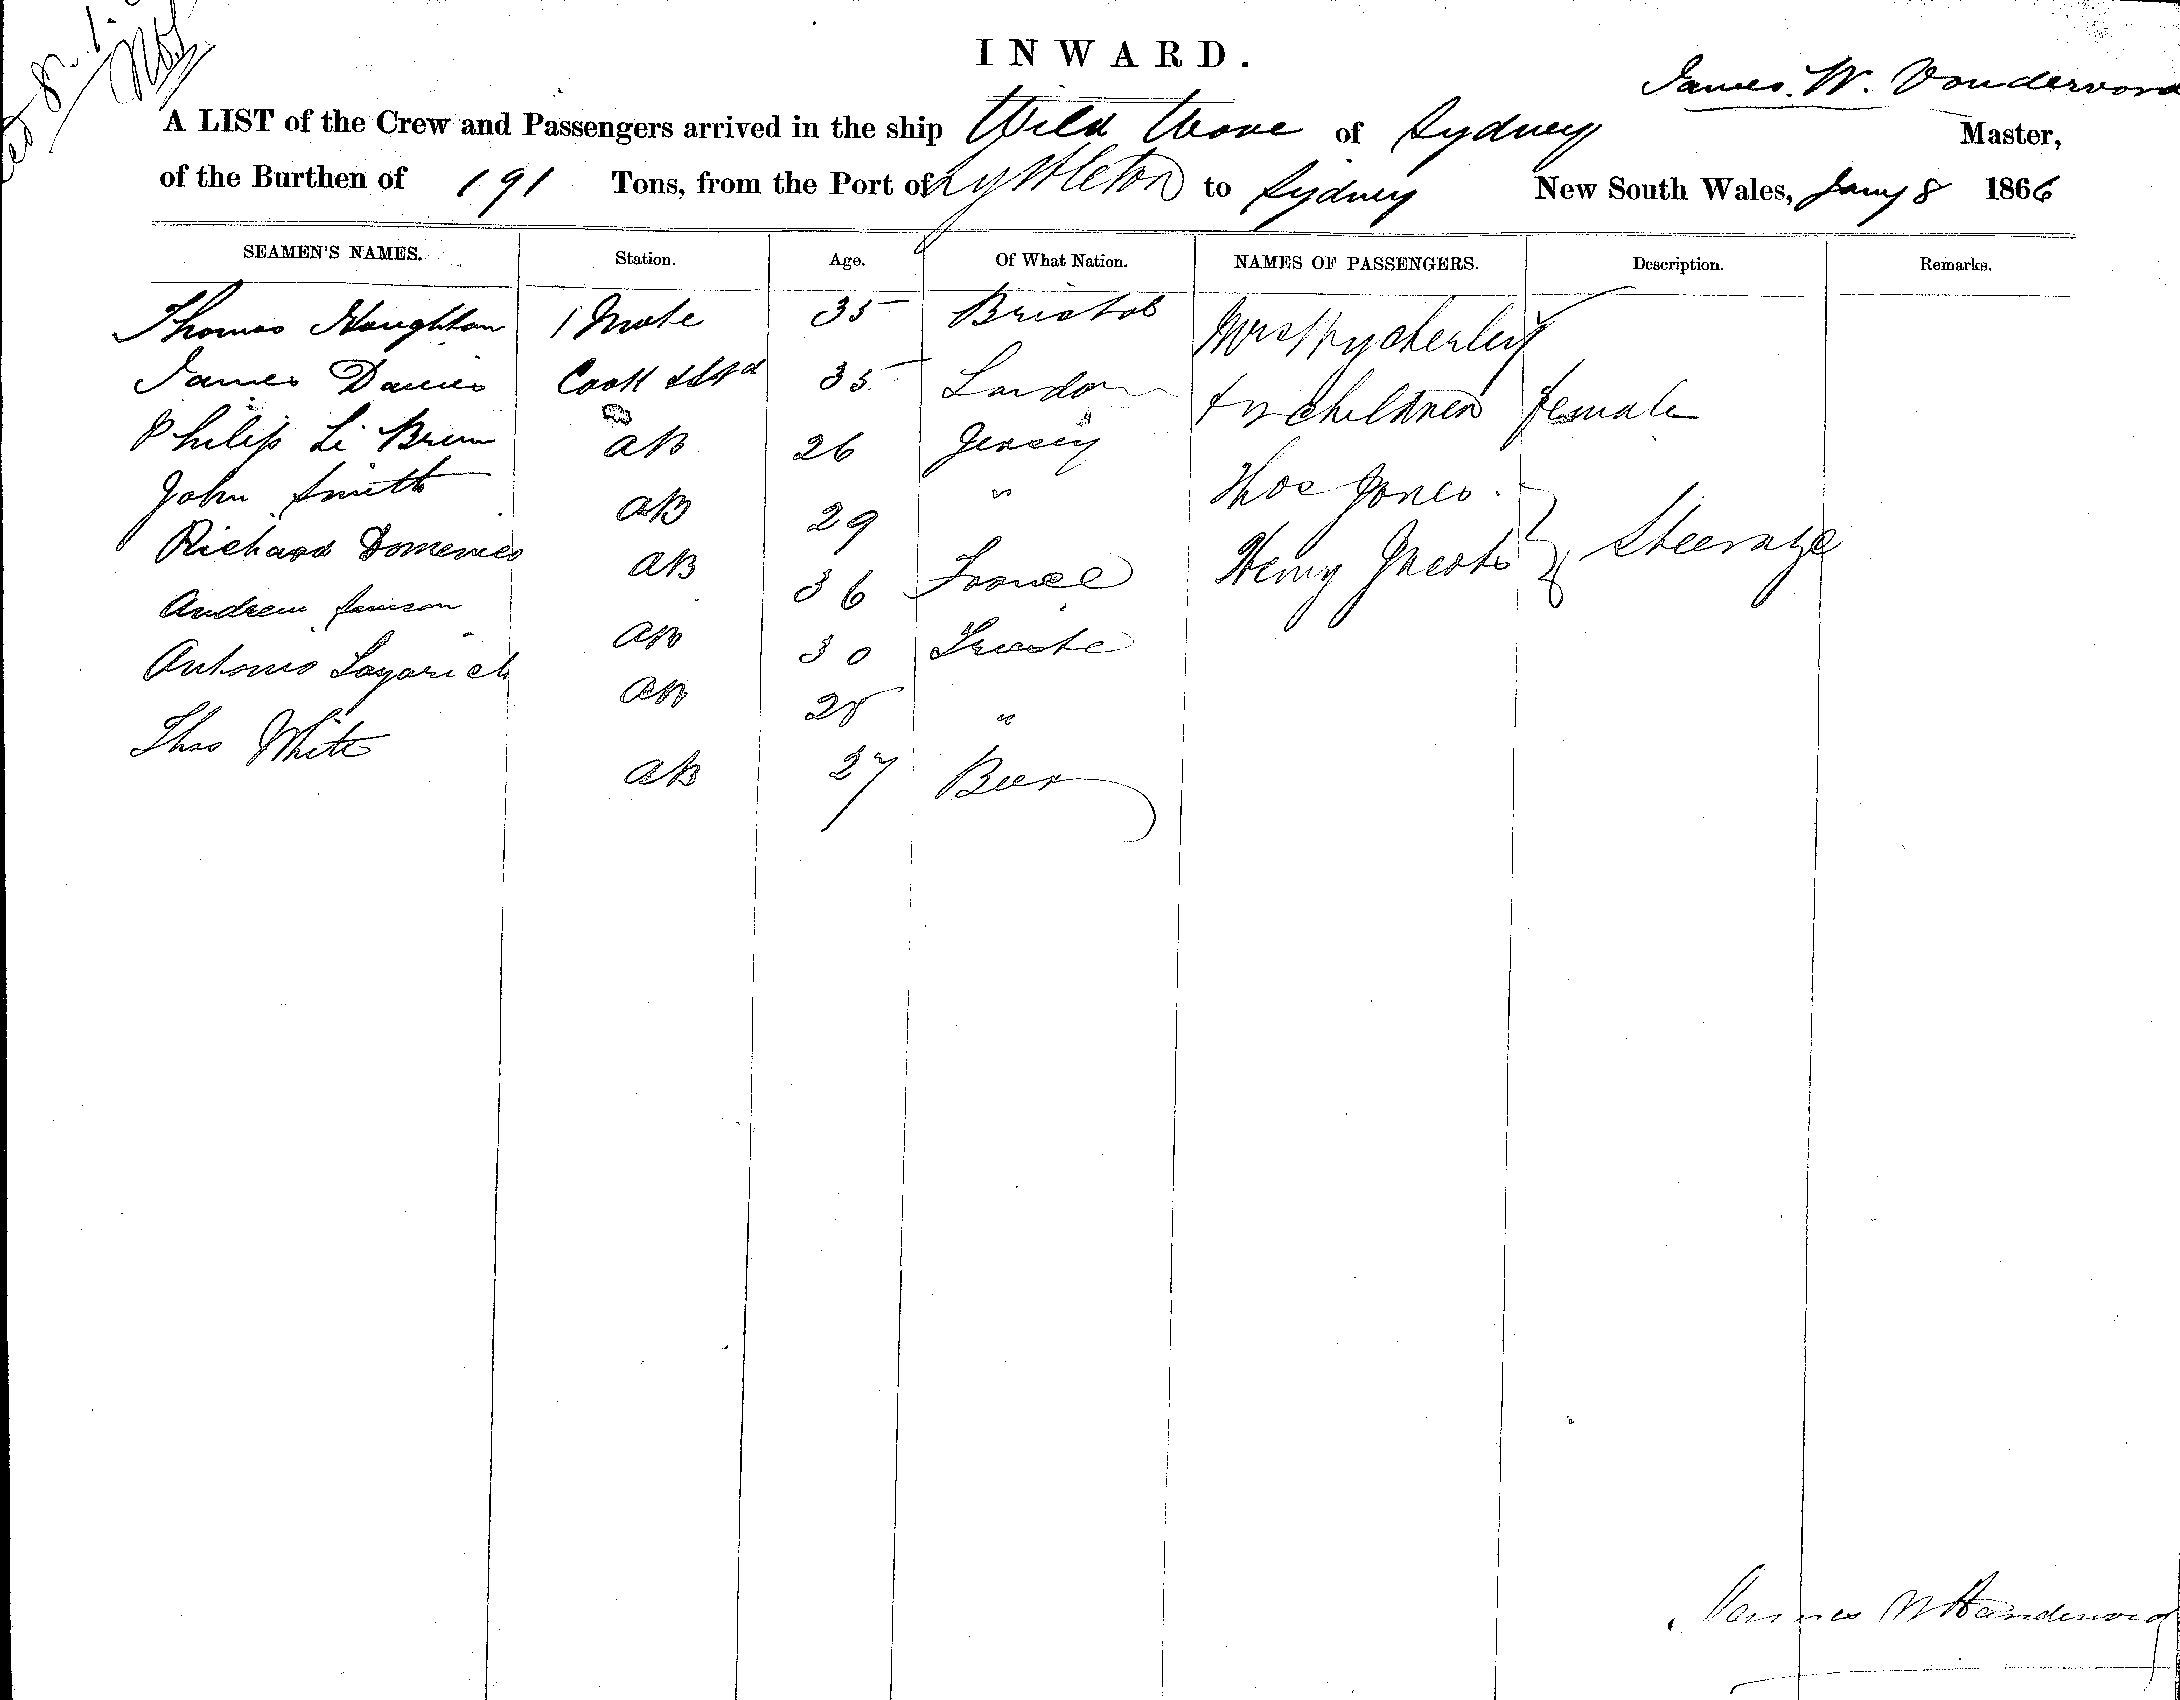 INWARD.
James. W. Vondervord
A LIST of the Crew and Passengers arrived in the ship Wild Wave of Sydney Master,
of the Burthen of 191 Tons, from the Port of Lyttleton to Sydney New South Wales, Jany 8 1866
SEAMEN'S NAMES. Station. Age. Of What Nation. NAMES OF PASSENGERS. Description. Remarks.
Thomas Haughton 1 Mate 35 Bristol Mrs Wycherley
James Davies Cook & Std 35 London children female
Philip Li Brun AB 26 Jersey
John Smith AB 29 " Thos Jones
Richard Domenico AB 36 France Henry Jacobs Steerage
Andrew AB 30 Trieste
Antonio Lazarich AB 28 "
Thos White AB 27 Beer
James W